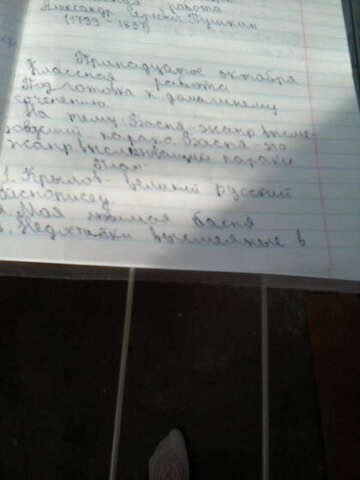 работа
Александр Сергеевич Пушкин
(1799-1837)
Тринадцатое октября
Классная работа
Подготовка к домашнему
сочинению
На тему: Басня-жанр высме-
пороки. Басня-это
жанр высмеивающий пороки
План
1. Крылов-великий русский
баснописец
2. Моя любимая басня
3. Недостатки высмеяные в